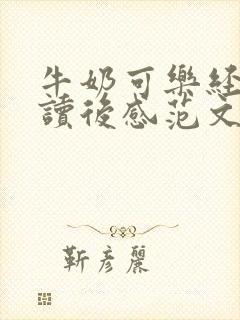 牛奶可樂經
讀後感范文
靳彥麗